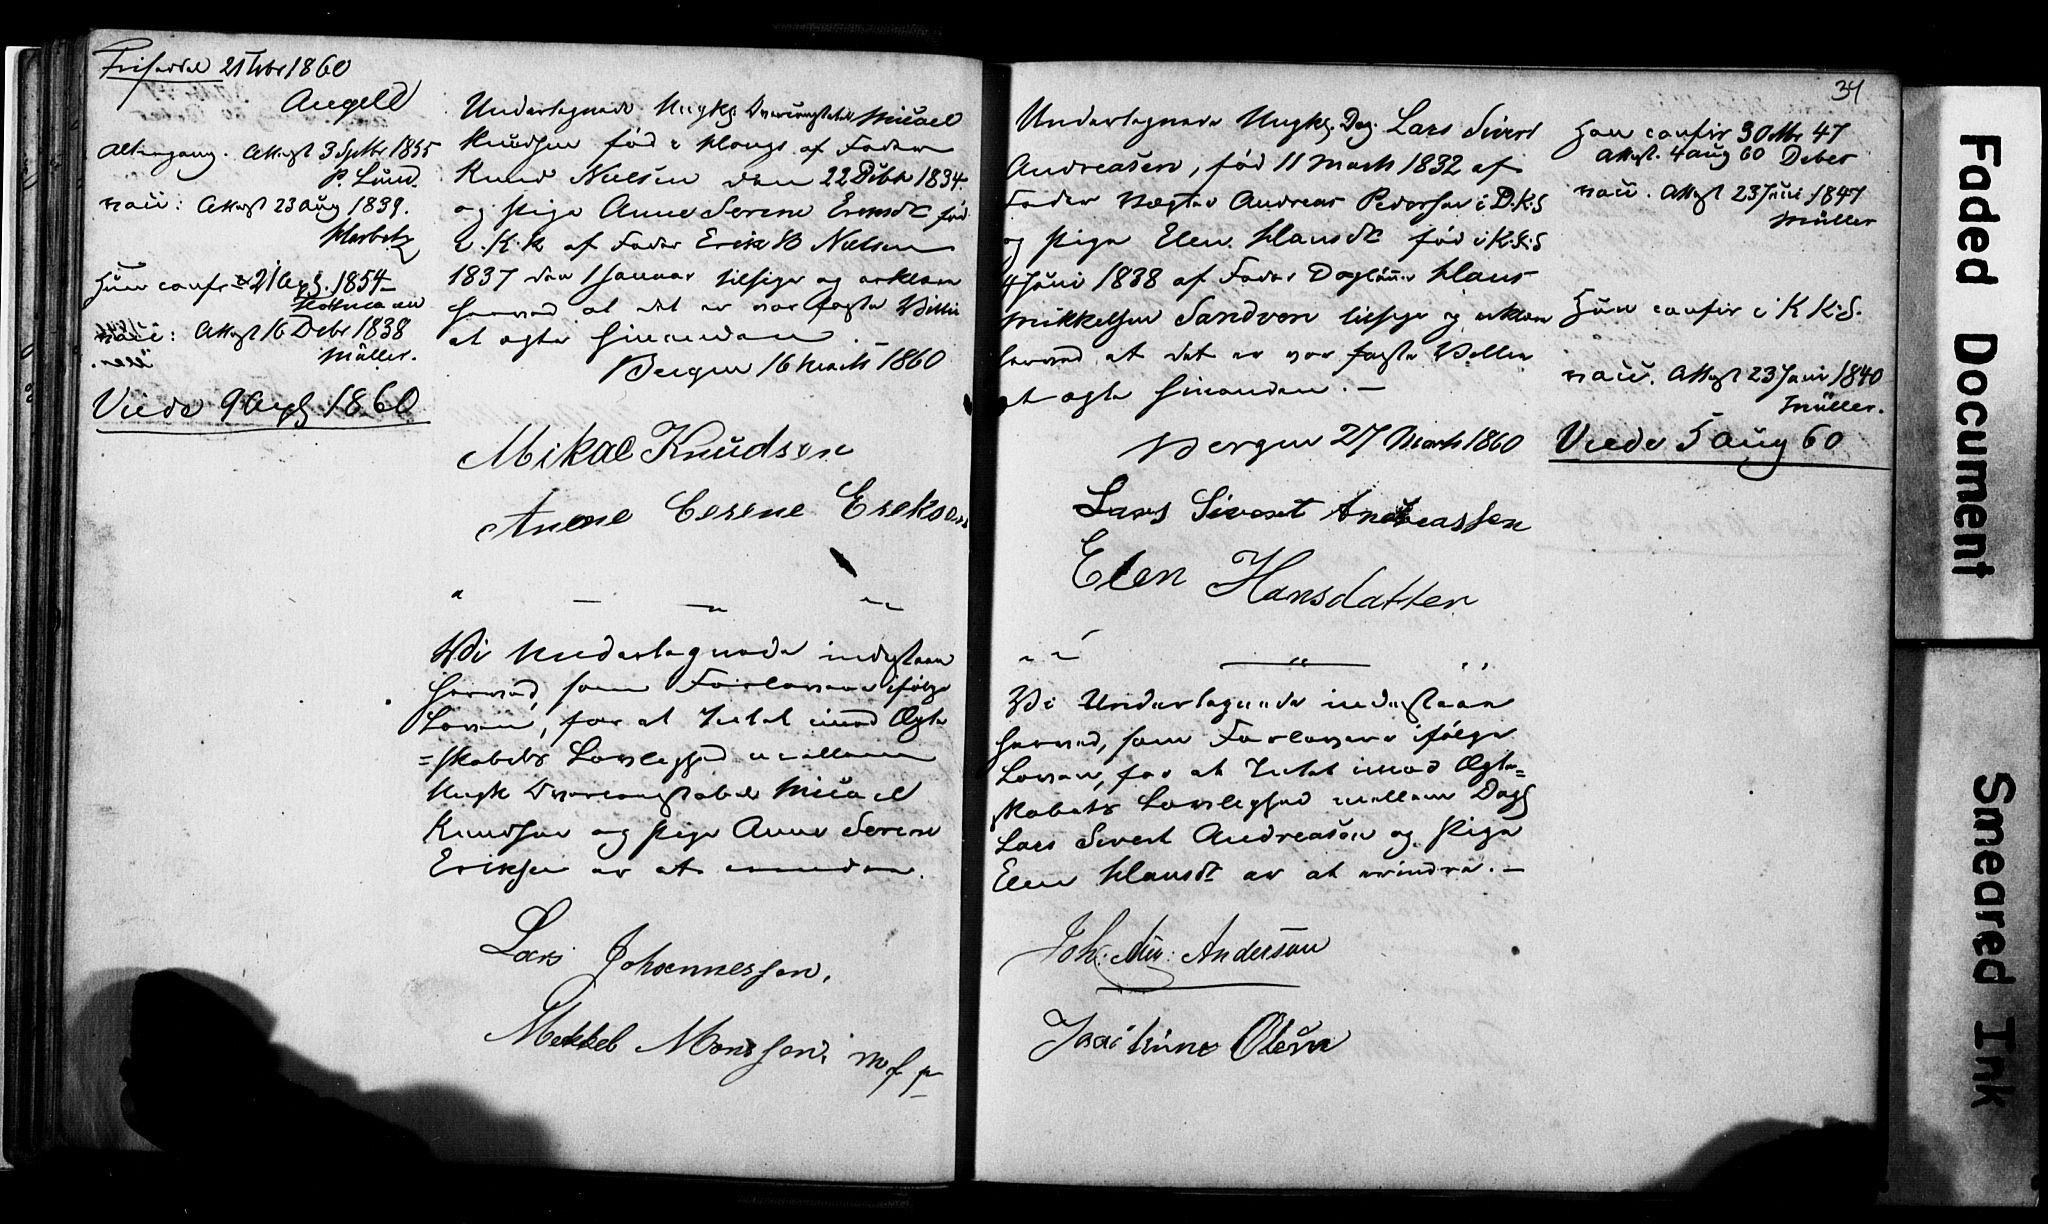 21 Febr 1860
Angell
Altergang. Attest 3 Septbr 1855
P. Lund.
vacc: Attest 23 Aug 1839.
Hun confr 21 Apr. 1854
vacc: Attest 16 Debr 1838
Müller.
Viede 9 Apr 1860
Undertegnede Ungk. Michael
Knudsen fød i Houg af Fader
Knud Nielsen den 22 Octbr 1834
og Pige Anne Serene Ericsdt fød
i K.K. af Fader Erik B Nielsen
1837 den 1 Januar tilstaar og erklære
herved at det er vor faste Villie
at ægte hinanden.
Bergen 16 March 1860
Mikal Knudsen
Anne Cerene Ereksen
Vi Undertegnede indestaae
herved, som Forlovere ifølge
Loven, for at Intet imod Ægte
=skabets Lovlighed mellem
Ungk Michael
Knudsen og Pige Anne Serene
Eriksen er at erindre.
Lars Johannessen.
Mekkel Monssen, m f p
34
Undertegnede Ungk. Dag. Lars Sivert
Andreasen, fød 11 March 1832 af
Fader Vægter Andreas Pedersen i D.K.S
og Pige Elen Hansdt fød i K.K.S
4 Juni 1838 af Fader Dagløner Hans
Mikkelsen Sandven tilstaar og erklære
herved at det er vor faste Villie
at ægte hinanden. —
Bergen 27 March 1860
Lars Sivert Andreassen
Elen Hansdatter
Vi Undertegnede indestaae
herved, som Forlovere ifølge
Loven, for at Intet imod Ægte=
skabets Lovlighed mellem Dag
Lars Sivert Andreasen og Pige
Elen Hansdt er at erindre. —
Joh: Andersen
Olsen
Han confir 3 Octbr 47
Attest. 4 Aug 60 Daber
vacc. Attest 23 Juni 1847
Müller
Hun confir i K K.S.
vacc. Attest 23 Juni 1840
Müller.
Viede 5 Aug 60
Faded Document
Smeared Ink